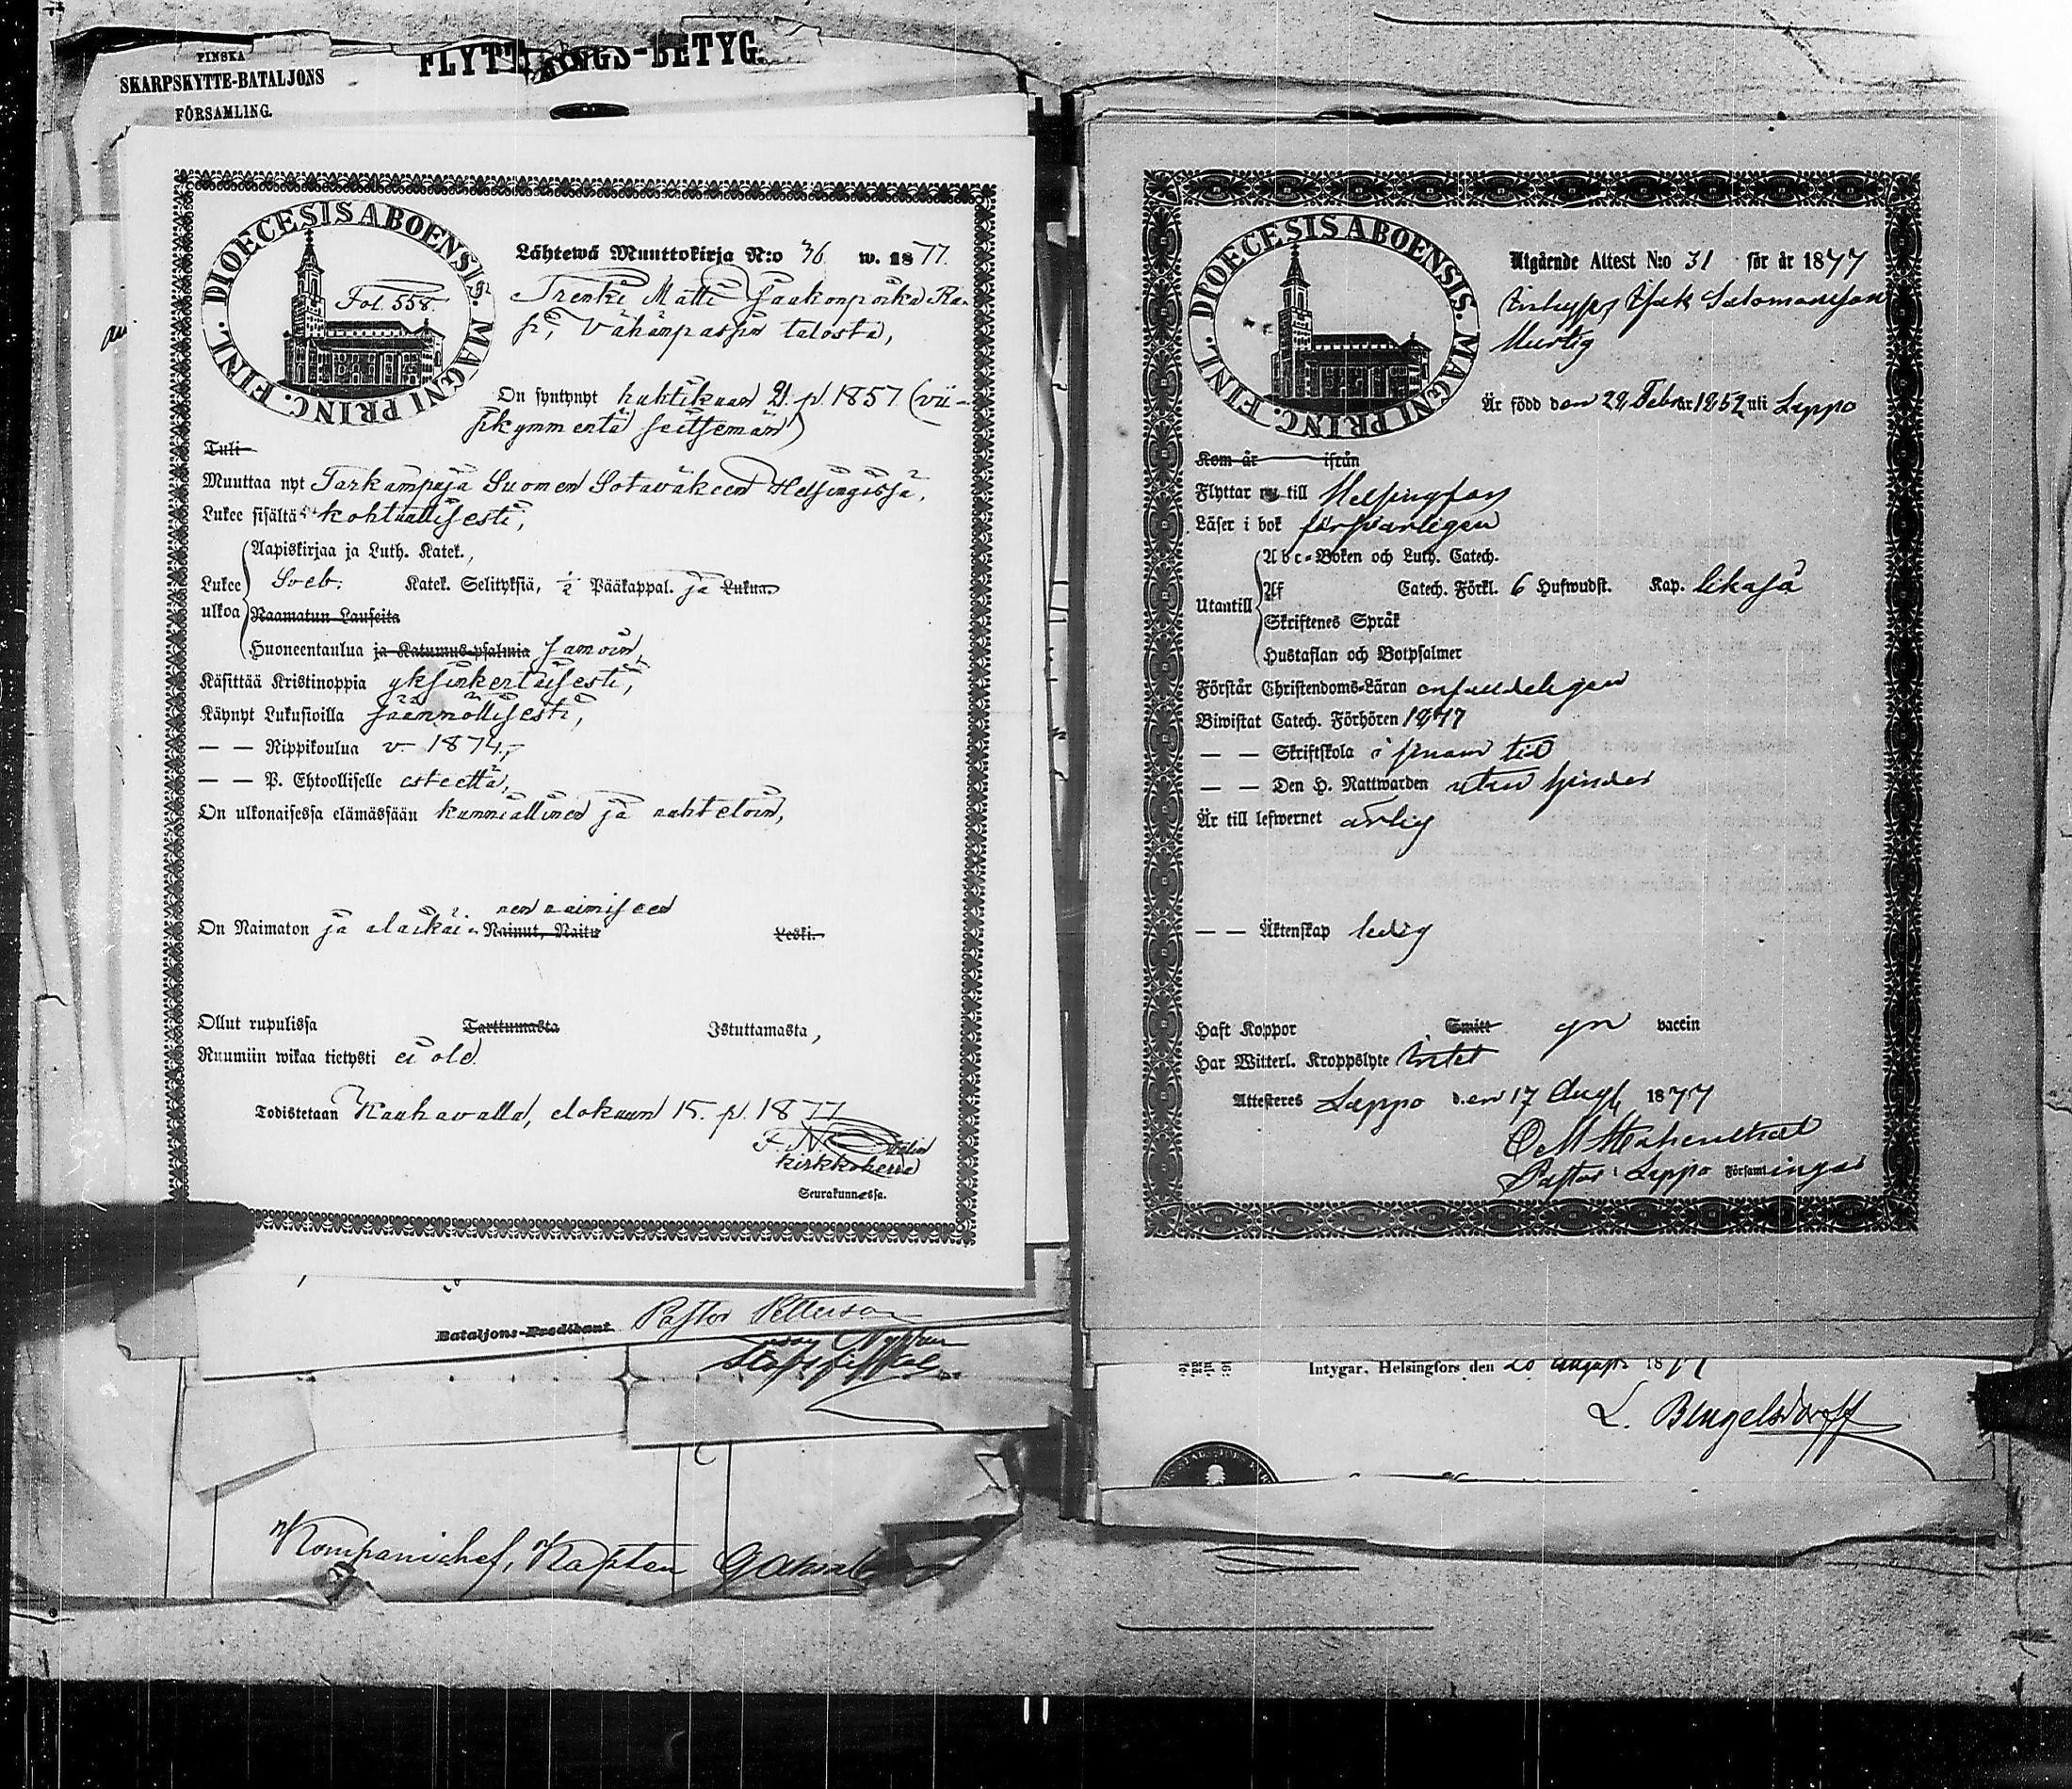 FINSKA
SKARPSKYTTE-BATALJONS
FÖRSAMLING.
FLYTTNINGS-BETYG.
DIOECESIS ABOENSIS. MAGNI PRINC. FINL.
Fol. 558.
Lähtewä Muuttokirja N:o 36 w. 1877.
Trenki Matti Jaakonpoika Ra-
si, Vähänpassin talosta,
On syntynyt huhtikuun 21 p. 1857 (vii-
sikymmentä seitsemän)
Tuli
Muuttaa nyt Tarkampuja Suomen Sotaväkeen Helsingissä,
Lukee sisältä kohtuullisesti,
Aapiskirjaa ja Luth. Katek.,
Lukee ulkoa Sveb. Katek. Selityksiä, 1/2 Pääkappal. ja Lukua
Raamatun Lauseita
Huoneentaulua ja Katumus-psalmia samoin,
Käsittää Kristinoppia yksinkertaisesti,
Käynyt Lukusioilla säännöllisesti,
— — Rippikoulua v 1874,
— — P. Ehtoolliselle esteettä,
On ulkonaisessa elämässään kunniallinen ja nuhteetoin,
nen naimiseen
On Naimaton ja alaikäi- Nainut, Naitu Leski.
Ollut rupulissa Tarttumasta Istuttamasta,
Ruumiin wikaa tietysti ei ole.
Todistetaan Kauhavalla, elokuun 15. p. 1877
kirkkoherra
Seurakunnassa.
Bataljons-Predikant
Pastor Petterson
Kompanichef, Kapten
DIOECESIS ABOENSIS. MAGNI PRINC. FINL.
Utgående Attest N:o 31 för år 1877
Isak Salomonsson
Murtig
Är född den 29 Febr 1852 uti Lappo
Kom år ifrån
Flyttar nu till Helsingfors
Läser i bok försvarligen
Abc-Boken och Luth. Catech.
Utantill Af Catech. Förkl. 6 Hufwudst. Kap. likaså
Skriftenes Språk
Hustaflan och Botpsalmer
Förstår Christendoms-Läran enfaldeligen
Biwistat Catech. Förhören 1877
— — Skriftskola i sinom tid
— — Den H. Nattwarden utan hinder
Är till lefwernet ärlig
— — Äktenskap ledig
Haft Koppor Smitt gn vaccin
Har Witterl. Kroppslyte Intet
Attesteres Lappo den 17 Aug 1877
Pastor i Lappo Församlingar
Intygar, Helsingfors den 20 augusti 1877
L. Bengelsdorff